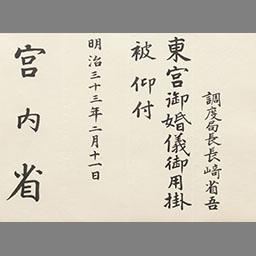 調度局長長﨑省吾
東宮御婚儀御用掛
被仰付
明治三十三年二月十一日
宮内省